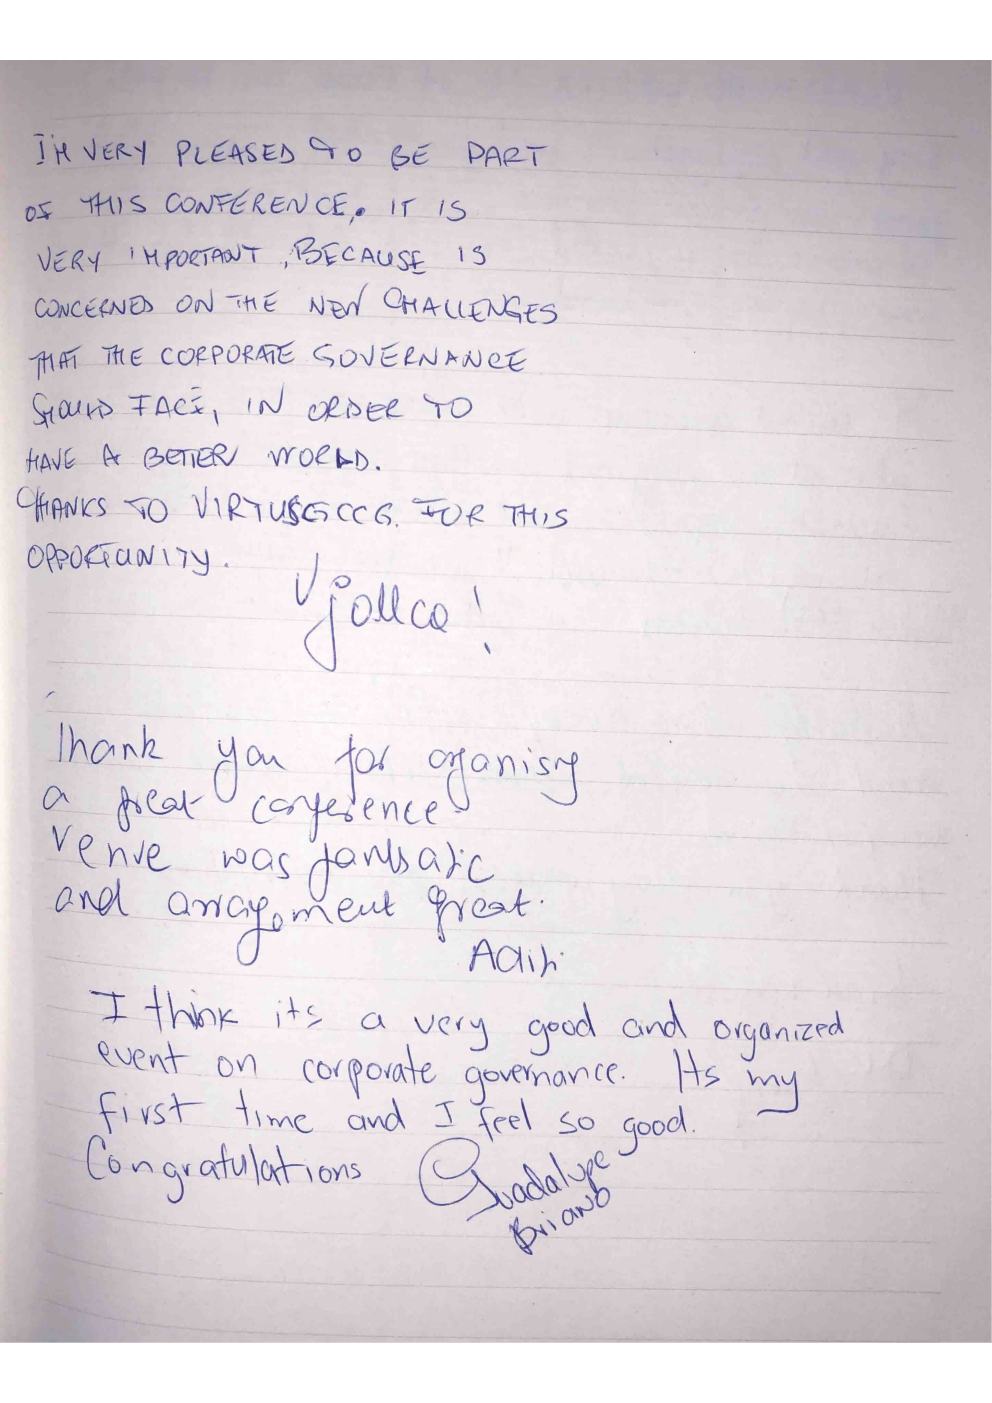 I'M VERY PLEASED TO BE PART
OF THIS CONFERENCE. IT IS
VERY IMPORTANT, BECAUSE IS
CONCERNED ON THE NEW CHALLENGES
THAT THE CORPORATE GOVERNANCE
SHOULD FACE, IN ORDER TO
HAVE A BETTER WORLD.
THANKS TO VIRTUSGCCG. FOR THIS
OPPORTUNITY.
Vjollca!
Thank you for organising
a great conference
Venue was fantastic
and arrangement great.
I think its a very good and organized
event on corporate governance. Its my
first time and I feel so good.
Congratulations Guadalupe
Briano